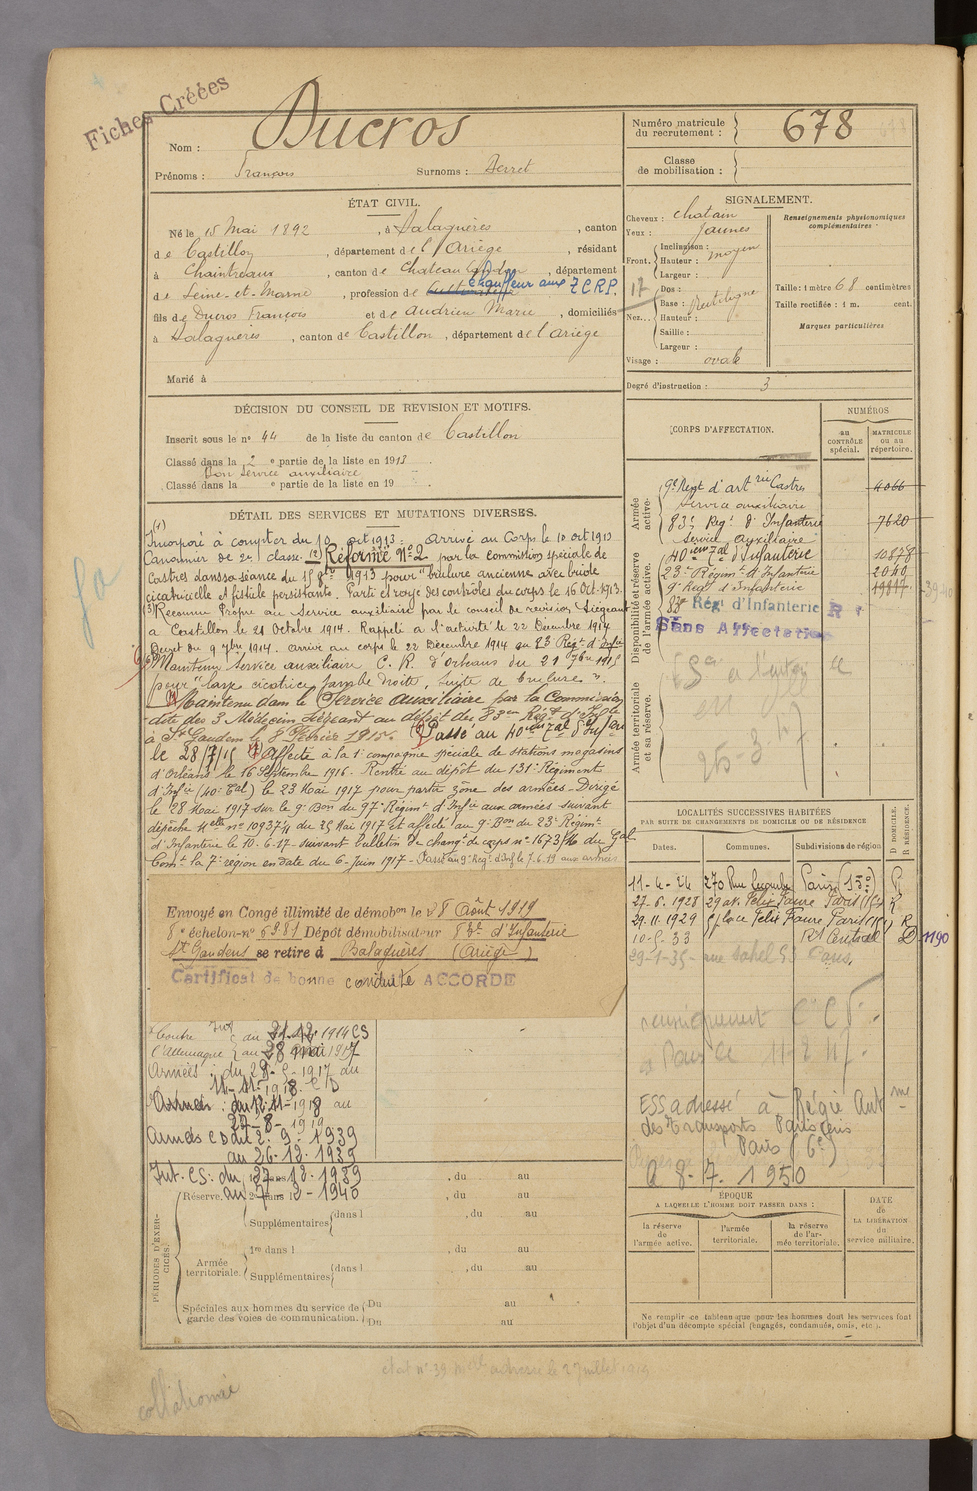 Fiches Créées
Nom : Ducros
Prénoms : François Surnoms : Serret
Numéro matricule du recrutement : 678
Classe de mobilisation :
ÉTAT CIVIL.
Né le 15 Mai 1892, à Balaguères, canton
de Castillon, département de l'Ariège, résidant
à Chaintreaux, canton de Chateau Landon, département
de Seine-et-Marne, profession de chauffeur aux T.C.R.P.
fils de Ducros François et de Audrieu Marie, domiciliés
à Balaguères, canton de Castillon, département de l'Ariège
Marié à
SIGNALEMENT.
Cheveux : chatain
Yeux : jaunes
Front. Inclinaison : moyen
Hauteur :
Largeur :
17
Nez... Dos :
Base : Rectiligne
Hauteur :
Saillie :
Largeur :
Visage : ovale
Renseignements physionomiques complémentaires :
Taille : 1 mètre 68 centimètres
Taille rectifiée : 1 m. cent.
Marques particulières
Degré d'instruction : 3
DÉCISION DU CONSEIL DE REVISION ET MOTIFS.
Inscrit sous le n° 44 de la liste du canton de Castillon
Classé dans la 2e partie de la liste en 1913.
Bon Service auxiliaire
Classé dans la e partie de la liste en 19 .
DÉTAIL DES SERVICES ET MUTATIONS DIVERSES.
(1)
Incorporé à compter du 10 oct 1913. arrivé au Corps le 10 oct 1913
Canonnier de 2e classe. (2) Réformé N° 2 par la commission spéciale de
Castres dans sa séance du 15 8bre 1913 pour "brulure ancienne avec bride
cicatricielle et fistule persistante. Parti et rayé des contrôles du corps le 16 Oct. 1913.
(3) Reconnu Propre au Service auxiliaire par le conseil de revision Siégeant
à Castillon le 21 Octobre 1914. Rappelé à l'activité le 22 Décembre 1914
Décret du 9 7bre 1914. arrivé au corps le 22 Décembre 1914 au 83 Régt d'Infie
Maintenu Service auxiliaire C. R. d'Orléans du 21 7bre 1915
pour "large cicatrice jambe droite, suite de brulure".
Maintenu dans le Service Auxiliaire par la Commission
dite des 3 Médecins siégeant au dépôt des 83en Régt d'Infie
à St Gaudens le 8 Février 1915. Passé au 40eme Tal d'Infie
le 28/7/15 Affecté à la 1e compagnie spéciale de stations magasins
d'Orléans le 16 Septembre 1916. Rentré au dépôt du 131e Régiment
d'Infie (40e Tal) le 23 Mai 1917 pour partir zône des armées - Dirigé
le 28 Mai 1917 sur le 9e Bon du 97e Régimt d'Infie aux armées suivant
dépêche Melle n° 10937 du 25 Mai 1917 et affecté au 9e Bon du 23e Régimt
d'Infanterie le 10.6.17 suivant bulletin de changt de corps n° 1673/Mo du Gal
Comt la 7e région en date du 6 Juin 1917 - Passé au 9e Régt d'Inf le 7.6.19 aux armées
Envoyé en Congé illimité de démobon le 28 Août 1919
8e échelon-n° 6981 Dépôt démobilisateur 83e d'Infanterie
St Gaudens se retire à Balaguères (Ariège)
Certificat de bonne conduite ACCORDE
Contre du 21.12.1914 CS
l'Allemagne au 28 mai 1917
Armées : du 28-5-1917 au
11-11-1918. CD
Armées : du 12-11-1918 au
27-8-1919
Armées CD du 2.9.1939
au 26.12.1939
Int. CS. du 27-12-1939
au 7-3-1940
PÉRIODES D'EXERCICES.
Réserve. 1re dans l , du au
2e dans l , du au
Supplémentaires (dans l , du au
Armée territoriale. 1re dans l , du au
Supplémentaires (dans l , du au
Spéciales aux hommes du service de garde des voies de communication. Du au
Du au
CORPS D'AFFECTATION.
NUMÉROS
au CONTRÔLE spécial.
MATRICULE ou au répertoire.
Armée active.
9e Régt d'artrie Castres 4066
Service auxiliaire
83e Régt d'Infanterie 7620
Service auxiliaire
Disponibilité et réserve de l'armée active.
40eme Tal d'Infanterie 10878
23e Régiment d'Infanterie 2040
9e Régt d'Infanterie 19817
83e Rég' d'Infanterie
Sans Affectation
Armée territoriale et sa réserve.
25-3-47
LOCALITÉS SUCCESSIVES HABITÉES
PAR SUITE DE CHANGEMENTS DE DOMICILE OU DE RÉSIDENCE
Dates. Communes. Subdivisions de région
D DOMICILE. R RÉSIDENCE.
11-4-24 270 Rue Lecourbe Paris (15e) R
27-6.1928 29 av. Felix Faure Paris (15e) R
29.11.1929 place Felix Faure Paris (15e) R
10-5-33 Rt Central D 1190
29-1-35- rue Sahel 53 Paris,
renseignement
11-2 47.
ESS adressé à Régie Autme
des Transports Parisiens
Paris (6e)
a 8-7.1950
ÉPOQUE
A LAQUELLE L'HOMME DOIT PASSER DANS :
la réserve de l'armée active.
l'armée territoriale.
la réserve de l'armée territoriale.
DATE de LA LIBÉRATION du service militaire.
Ne remplir ce tableau que pour les hommes dont les services font
l'objet d'un décompte spécial (engagés, condamnés, omis, etc.).
état n° 39 adressé le 27 juillet 1919